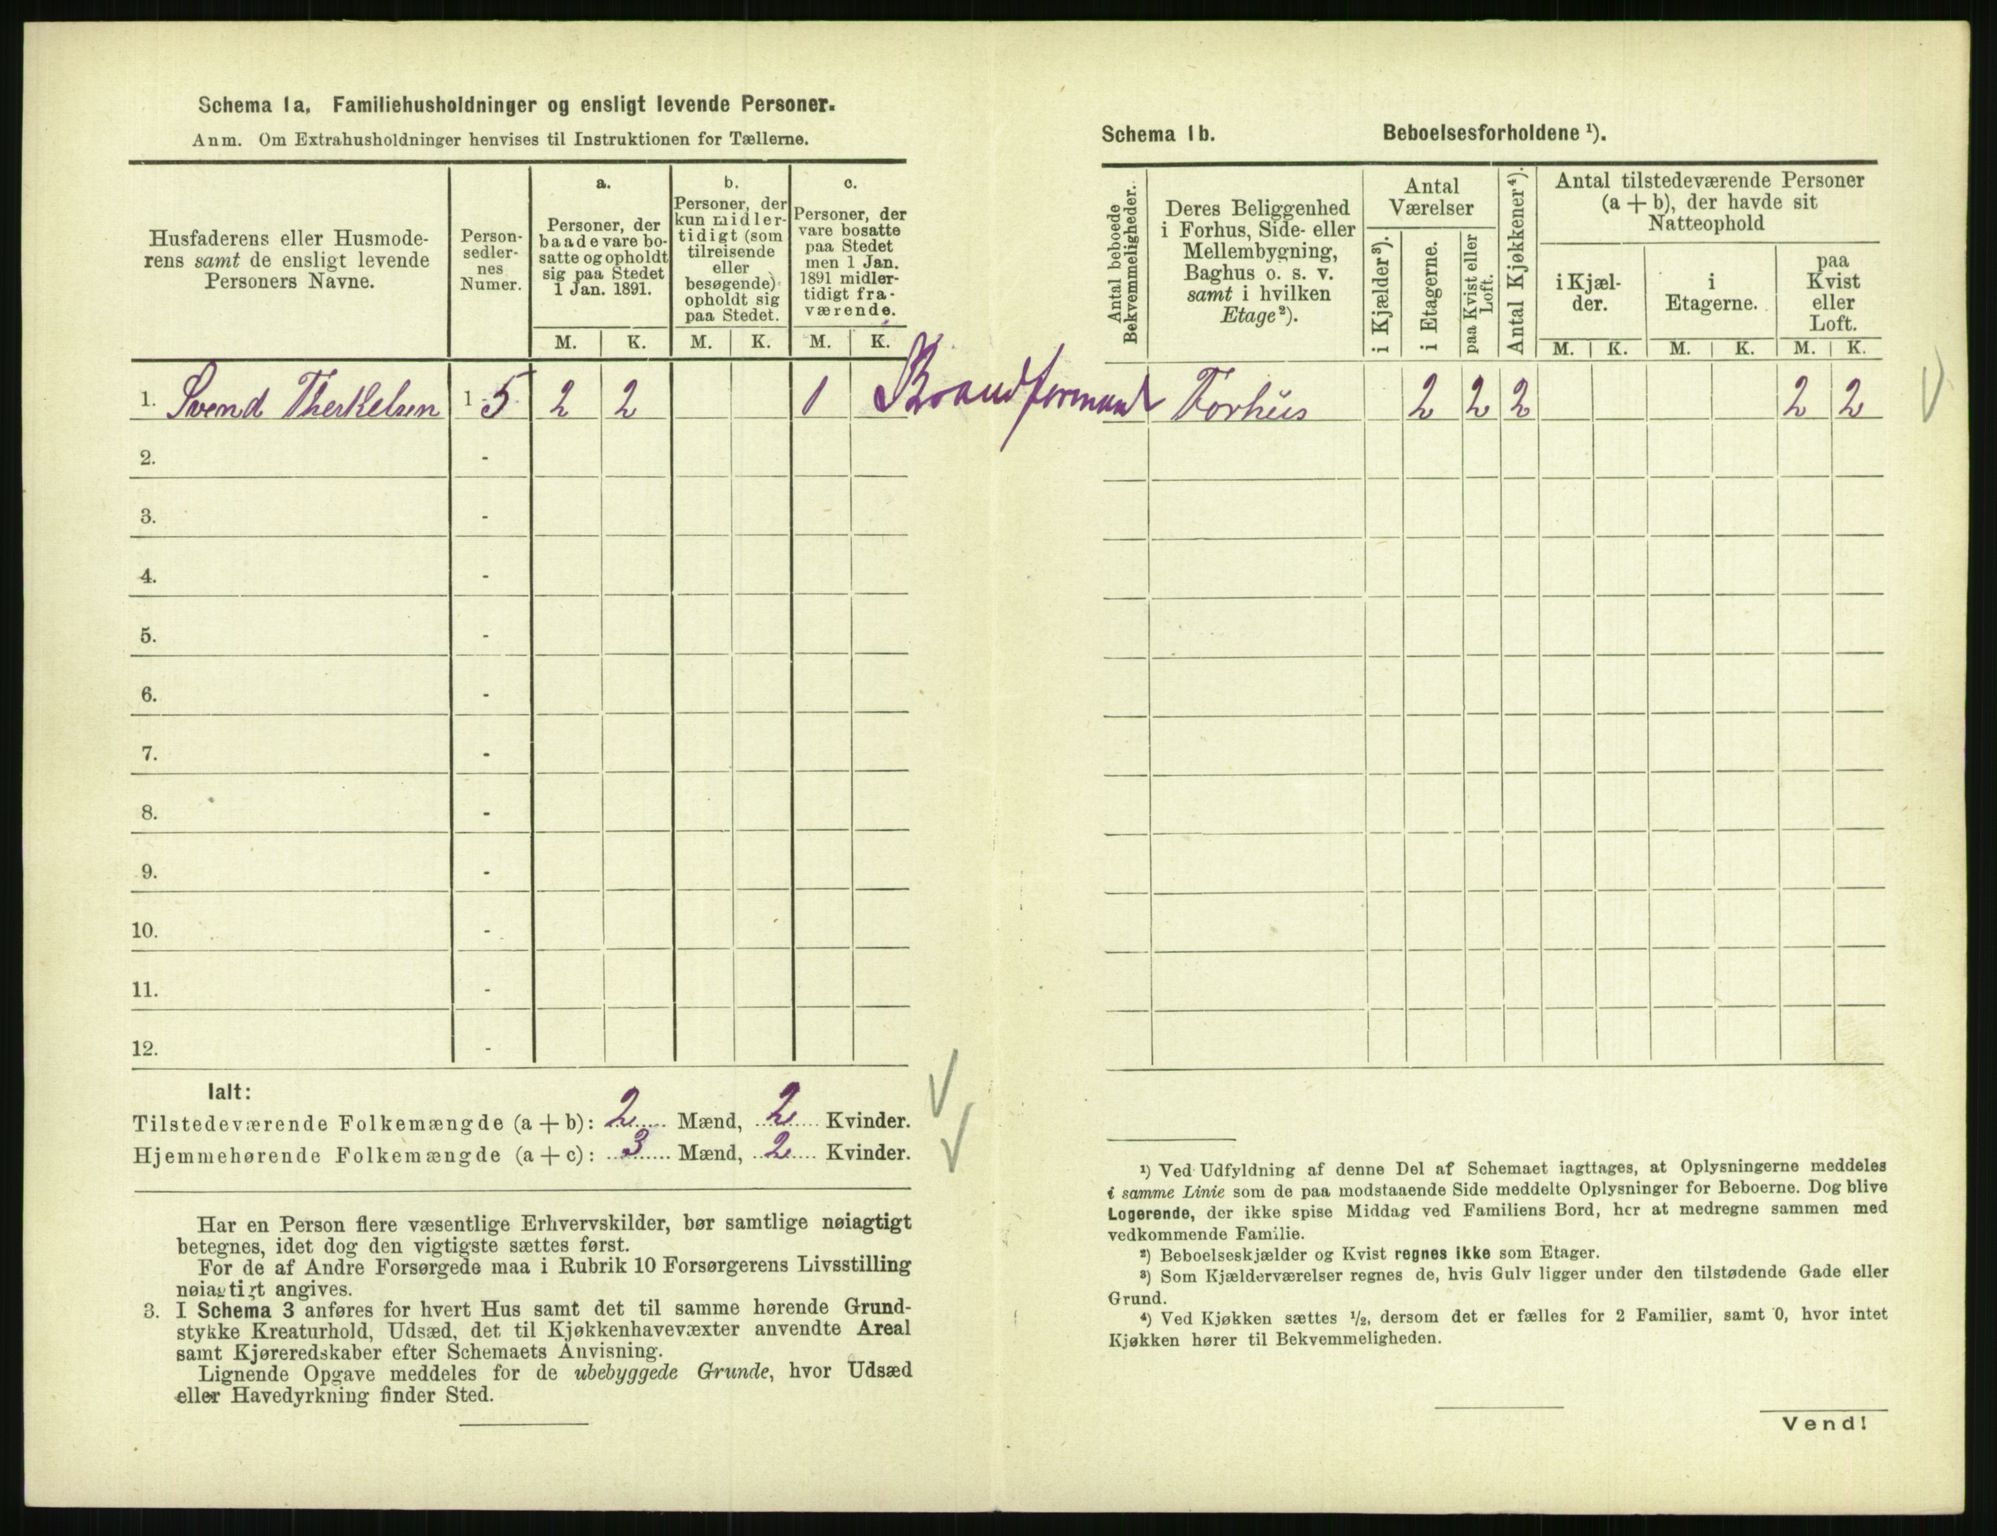 Schema 1a. Familiehusholdninger og ensligt levende Personer.
Anm. Om Extrahusholdninger henvises til Instruktionen for Tællerne.
Husfaderens eller Husmode-
rens samt de ensligt levende
Personers Navne.
Person-
sedler-
nes
Numer.
a.
Personer, der
baade vare bo-
satte og opholdt
sig paa Stedet
1 Jan. 1891.
b.
Personer, der
kun midler-
tidigt (som
tilreisende
eller
besøgende)
opholdt sig
paa Stedet.
c.
Personer, der
vare bosatte
paa Stedet
men 1 Jan.
1891 midler-
tidigt fra-
værende.
M. K. M. K. M. K.
1. Svend Therkelsen 1-5 2 2 1 Brandformand
2. -
3. -
4. -
5. -
6. -
7. -
8. -
9. -
10. -
11. -
12. -
Ialt:
Tilstedeværende Folkemængde (a + b): 2 Mænd, 2 Kvinder.
Hjemmehørende Folkemængde (a + c): 3 Mænd, 2 Kvinder.
Har en Person flere væsentlige Erhvervskilder, bør samtlige nøiagtigt
betegnes, idet dog den vigtigste sættes først.
For de af Andre Forsørgede maa i Rubrik 10 Forsørgerens Livsstilling
nøiagtigt angives.
3. I Schema 3 anføres for hvert Hus samt det til samme hørende Grund-
stykke Kreaturhold, Udsæd, det til Kjøkkenhavevæxter anvendte Areal
samt Kjøreredskaber efter Schemaets Anvisning.
Lignende Opgave meddeles for de ubebyggede Grunde, hvor Udsæd
eller Havedyrkning finder Sted.
Schema 1b. Beboelsesforholdene ¹).
Antal beboede
Bekvemmeligheder.
Deres Beliggenhed
i Forhus, Side- eller
Mellembygning,
Baghus o. s. v.
samt i hvilken
Etage²).
Antal
Værelser
i Kjælder³).
i Etagerne.
paa Kvist eller
Loft.
Antal Kjøkkener⁴).
Antal tilstedeværende Personer
(a + b), der havde sit
Natteophold
i Kjæl-
der.
i
Etagerne.
paa
Kvist
eller
Loft.
M. K. M. K. M. K.
Forhus 2 2 2 2 2
¹) Ved Udfyldning af denne Del af Schemaet iagttages, at Oplysningerne meddeles
i samme Linie som de paa modstaaende Side meddelte Oplysninger for Beboerne. Dog blive
Logerende, der ikke spise Middag ved Familiens Bord, her at medregne sammen med
vedkommende Familie.
²) Beboelseskjælder og Kvist regnes ikke som Etager.
³) Som Kjælderværelser regnes de, hvis Gulv ligger under den tilstødende Gade eller
Grund.
⁴) Ved Kjøkken sættes ½, dersom det er fælles for 2 Familier, samt 0, hvor intet
Kjøkken hører til Bekvemmeligheden.
Vend!